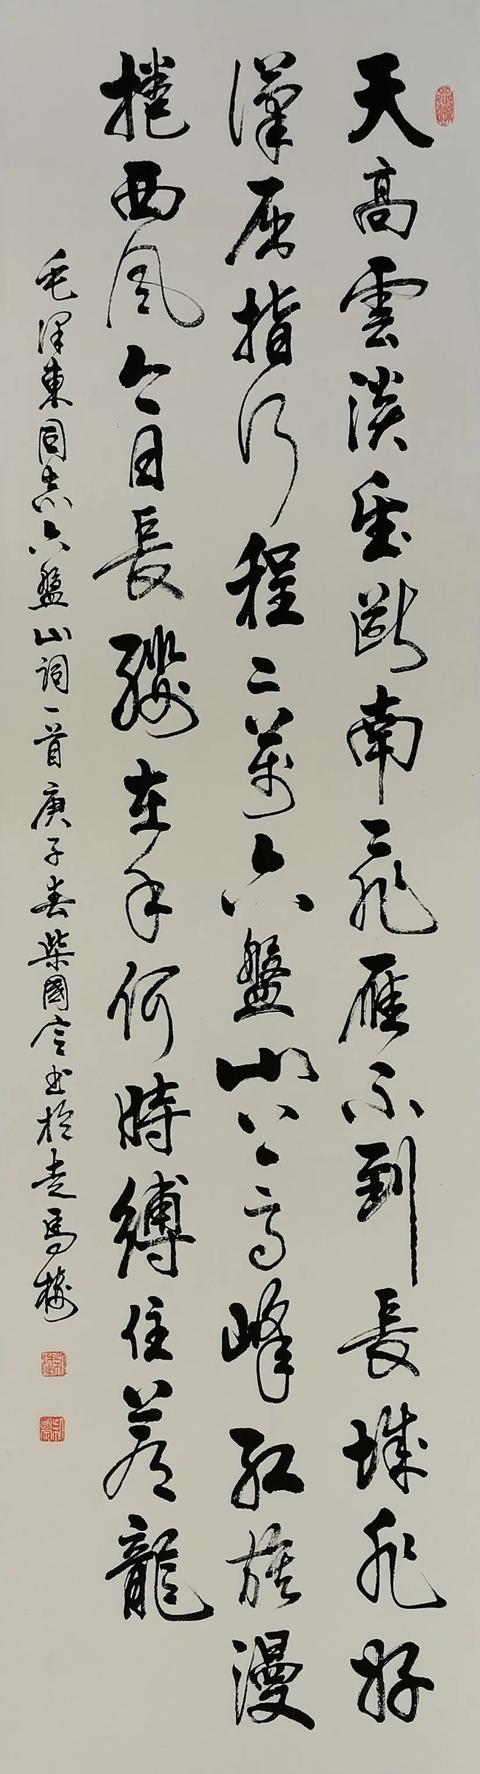 天高雲淡望斷南飛雁不到長城非好
漢屈指行程二萬六盤山上高峰紅旗漫
捲西風今日長纓在手何時縛住蒼龍
毛澤東同志六盤山詞一首庚子春柴國書於走馬樓